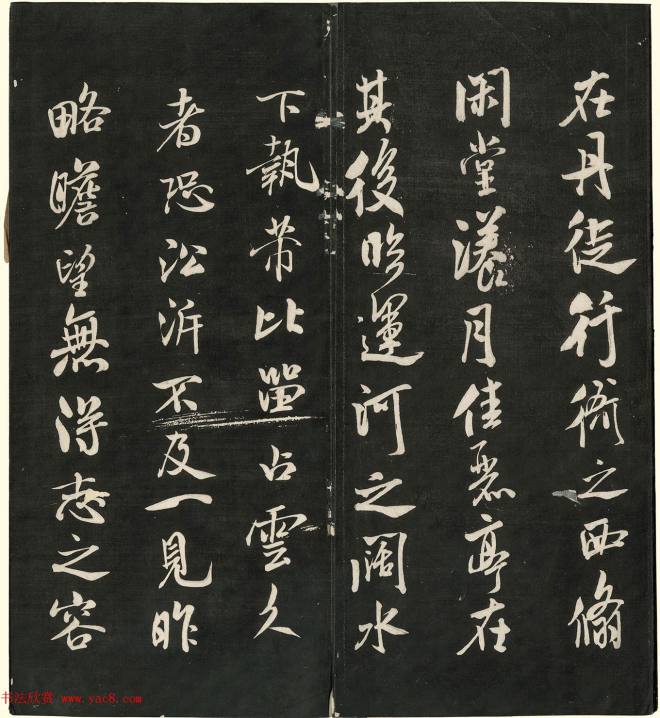 在丹徒行衙之西翛
閑堂漾月佳麗亭在
其後臨運河之闊水
下執帶比留占雲久
者恐沿泝不及一見昨
略瞻望無得志之容
书法欣赏 www.yac8.com